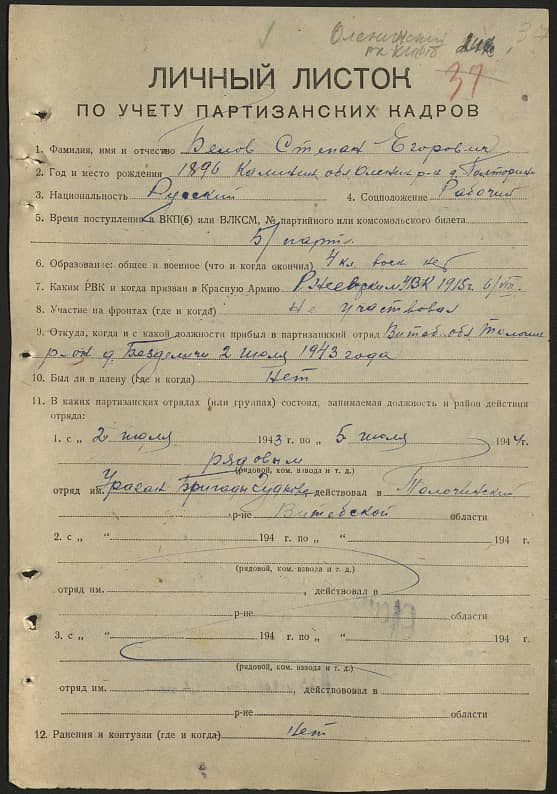 Оленинский
РК КП(б)
37
37
ЛИЧНЫЙ ЛИСТОК
ПО УЧЕТУ ПАРТИЗАНСКИХ КАДРОВ
1. Фамилия, имя и отчество Белов Степан Егорович
2. Год и место рождения 1896 Калинин обл Оленин р-н д.
3. Национальность Русский 4. Соцположение Рабочий
5. Время поступления в ВКП(б) или ВЛКСМ, № партийного или комсомольского билета
б/парт.
6. Образование: общее и военное (что и когда окончил) 4 кл. воен нет
7. Каким РВК и когда призван в Красную Армию Ржевским УВК 1915г. 6/VIII.
8. Участие на фронтах (где и когда) Не участвовал
9. Откуда, когда и с какой должности прибыл в партизанкий отряд Витеб. обл Толочин
р-он д. Безделичи 2 июля 1943 года
10. Был ли в плену (где и когда) Нет
11. В каких партизанских отрялах (или группах) состоял, занимаемая должность и район действия
отряда:
1. с „ 2 июля 1943 г. по „ 5 июля 1944 г.
рядовым
(рядовой, ком. взвода и т. д.)
отряд им. Ураган Бригады Гудкова действовал в Толочинский
р-не Витебской области
2. с „ “ 194 г. по „ “ 194 г.
(рядовой, ком. взвода и т. д.)
отряд им. , действовал в
р-не области
3. с „ “ 194 г. по „ “ 194 г.
(рядовой, ком. взвода и т. д.)
отряд им. , действововал в
р-не области
12. Ранения и контузии (где и когда) Нет